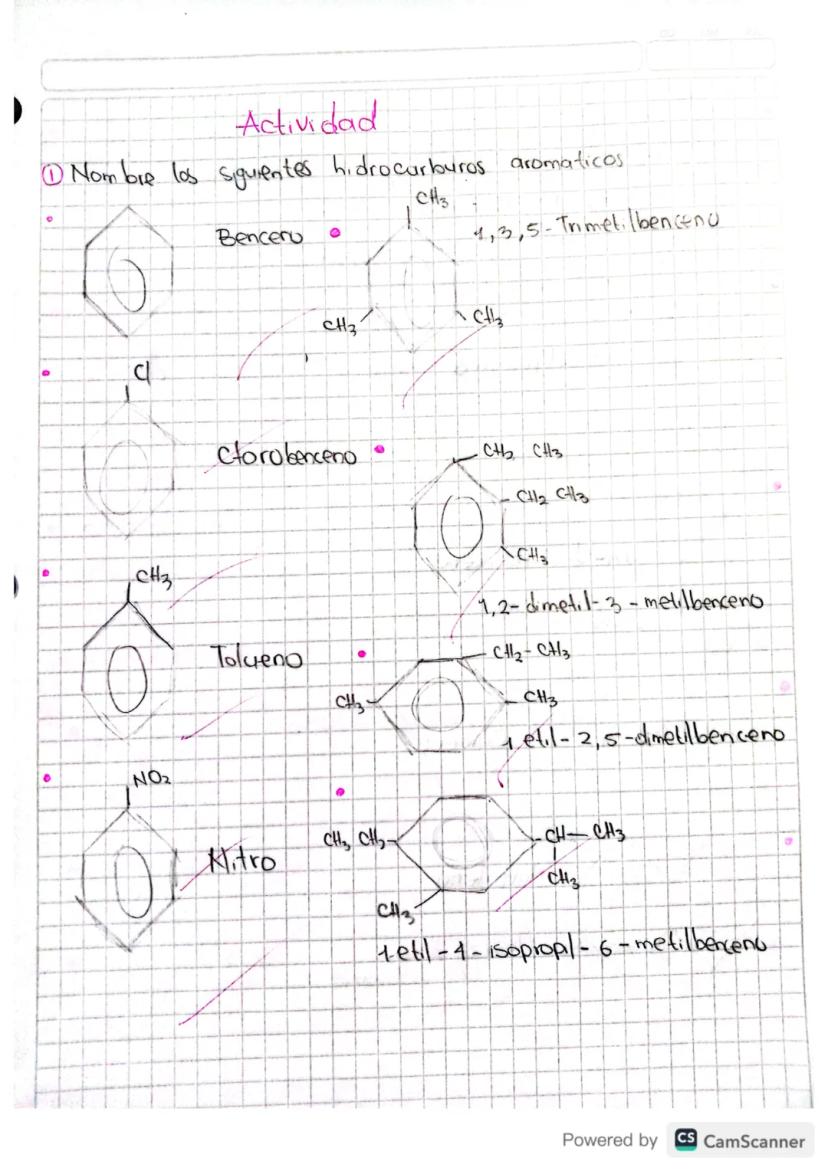 Actividad
① Nombre los siguientes hidrocarburos aromaticos
Benceno
CH3
1,3,5-Trimetilbenceno
CH3
CH3
Cl
Clorobenceno
CH2 CH3
CH2 CH3
CH3
1,2-dimetil-3-metilbenceno
CH3
Tolueno
CH2-CH3
CH3
CH3
1 etil-2,5-dimetilbenceno
NO2
Nitro
CH3 CH2
CH-CH3
CH3
CH3
1-etil-4-isopropil-6-metilbenceno
Powered by CS CamScanner